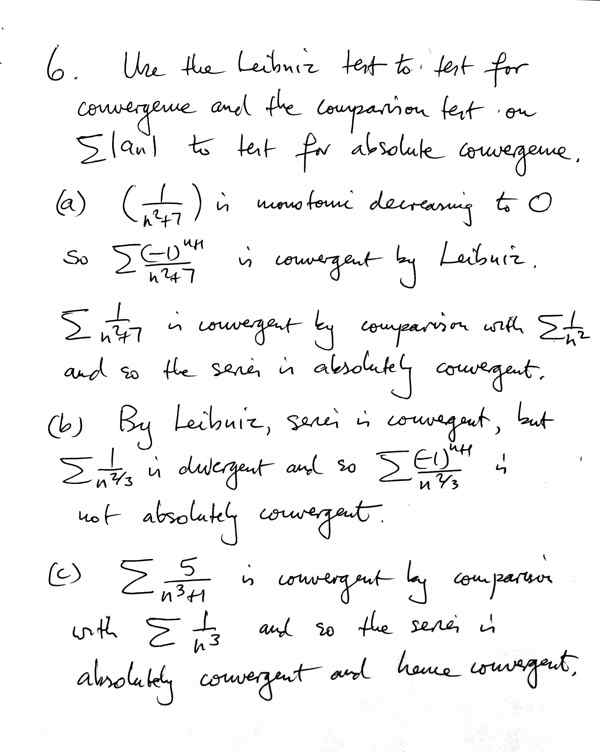 6. Use the Leibniz test to test for
convergence and the comparison test on
∑|an| to test for absolute convergence.
(a) (1/(n²+7)) is monotonic decreasing to 0
so ∑ (-1)ⁿ⁺¹/(n²+7) is convergent by Leibniz.
∑ 1/(n²+7) is convergent by comparison with ∑ 1/n²
and so the series is absolutely convergent.
(b) By Leibniz, series is convergent, but
∑ 1/n^(2/3) is divergent and so ∑ (-1)ⁿ⁺¹/n^(2/3) is
not absolutely convergent.
(c) ∑ 5/(n³+1) is convergent by comparison
with ∑ 1/n³ and so the series is
absolutely convergent and hence convergent.